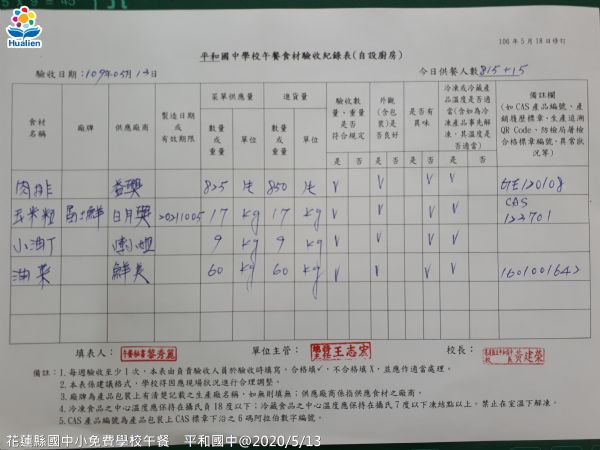 Hualien
106 年 5 月 18 日修訂
平和國中學校午餐食材驗收紀錄表(自設廚房)
驗收日期：109年05月13日 今日供餐人數815+15
食材名稱 廠牌 供應廠商 製造日期或有效期限 菜單供應量 進貨量 驗收數量、重量是否符合規定 外觀(含包裝)是否良好 是否有異味 冷凍或冷藏產品溫度是否適當(含如為冷凍產品事先解凍，其溫度是否適當) 備註欄(如CAS 產品編號、產銷履歷標章、生產追溯QR Code、防檢局署檢合格標章編號、異常狀況等)
數量或重量 單位 數量或重量 單位 是 否 是 否 是 否 是 否
肉排 益興 825 片 850 片 V V V V
玉米粒 日月興 20211005 17 kg 17 kg V V V V CAS
9 kg 9 kg V V V
油菜 鮮美 60 kg 60 kg V V V
填表人： 單位主管： 王志宏 校長： 黃建榮
備註：1.每週驗收至少1次，本表由負責驗收人員於驗收時填寫，合格填✓，不合格填X，並應作適當處理。
2.本表係建議格式，學校得因應現場狀況進行合理調整。
3.廠牌為產品包裝上有清楚記載之生產廠名稱，如無則填無；供應廠商係指供應食材之廠商。
4.冷凍食品之中心溫度應保持在攝氏負18度以下；冷藏食品之中心溫度應保持在攝氏7度以下凍結點以上，禁止在室溫下解凍。
5.CAS產品編號為產品包裝上CAS標章下沿之6碼阿拉伯數字編號。
花蓮縣國中小免費學校午餐 平和國中@2020/5/13